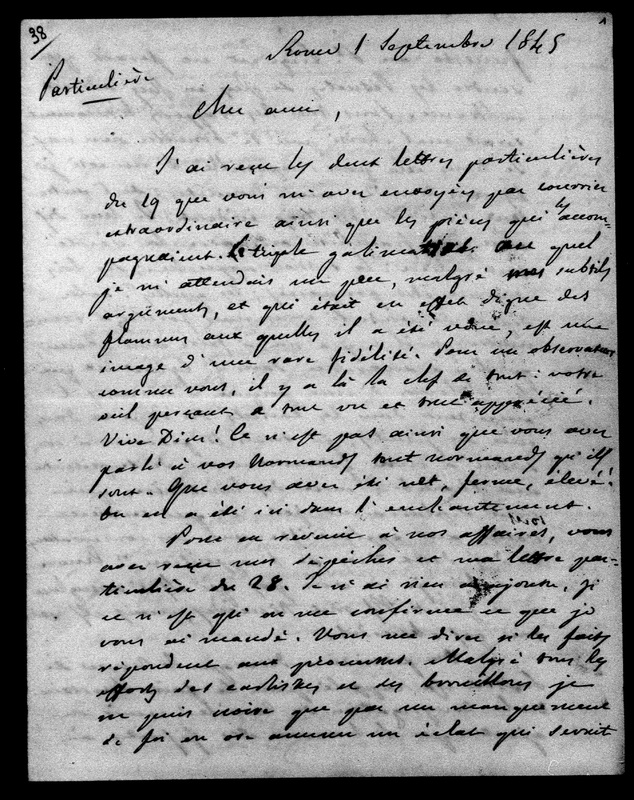 38
Rome 1 Septembre 1845
Particulière
Cher ami,
J'ai reçu les deux lettres particulières
du 19 que vous m'avez envoyées par courrier
extraordinaire ainsi que les pièces qui les accom-
pagnaient. Le triple galimatias au quel
je m'attendais un peu, malgré mes subtils
arguments, et qui était en effet digne des
flammes aux quelles il a été voué, est une
image d'une rare fidélité. Pour un observateur
comme vous, il y a là la clef de tout : votre
œil perçant a tout vu et tout apprécié.
Vive Dieu! Ce n'est pas ainsi que vous avez
parlé à vos Normands tout normands qu'ils
sont. Que vous avez été net, ferme, élevé!
On en a été ici dans l'enchantement.
Pour en revenir à nos affaires, vous
avez reçu mes dépêches et ma lettre par-
ticulière du 28. Je n'ai rien à ajouter, si
ce n'est qu'on me confirme ce que je
vous ai mandé. Vous me direz si les faits
répondent aux promesses. Malgré tous les
efforts des carlistes et des brouillons je
ne puis croire que par un manquement
de foi on ose amener un éclat qui serait